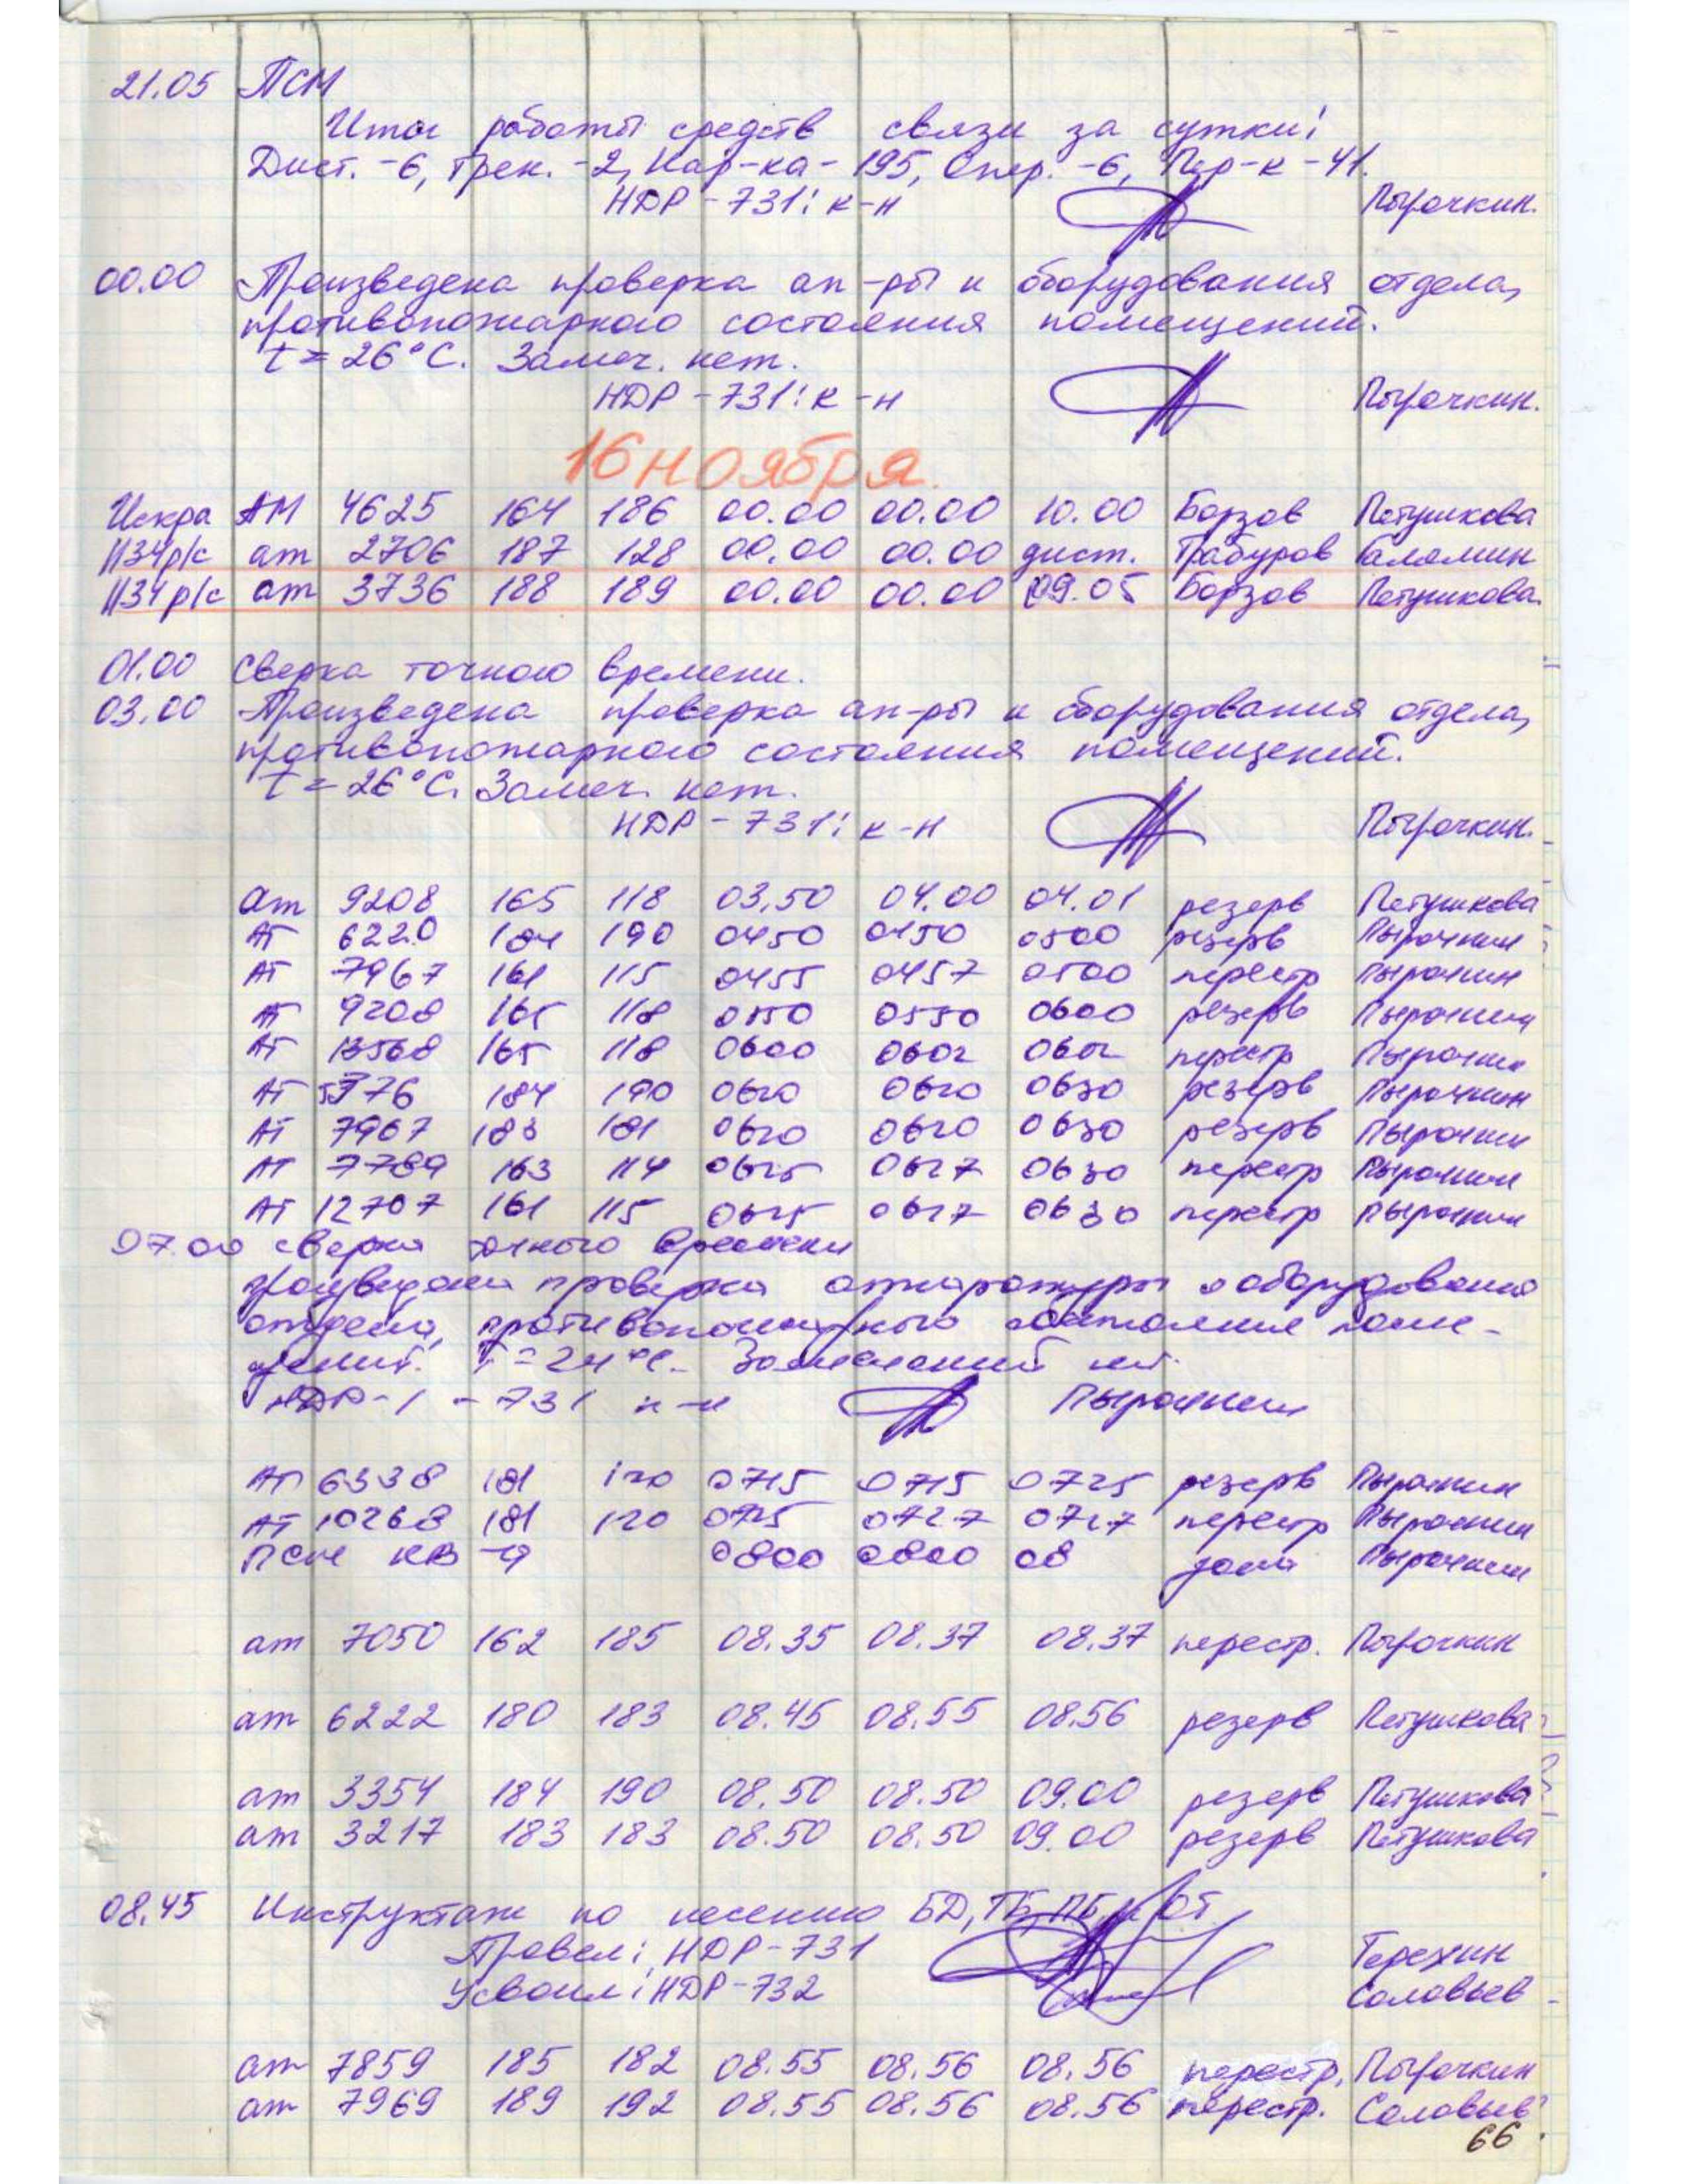 21.05 ПСМ
Итог работы средств связи за сутки:
Дист. -6, Трен. -2, Кар-ка - 195, Опер. -6, Пер-к -41.
НДР - 731: к-н Пырочкин.
00.00 Произведена проверка ап-ры и оборудования отдела,
противопожарного состояния помещений.
t = 26°С. Замеч. нет.
НДР - 731: к-н Пырочкин.
16 ноября.
Искра АМ 4625 164 186 00.00 00.00 10.00 Борзов Петушкова
1134р/с ат 2706 187 128 00.00 00.00 дист. Трабуров
1134р/с ат 3736 188 189 00.00 00.00 09.05 Борзов Петушкова
01.00 Сверка точного времени.
03.00 Произведена проверка ап-ры и оборудования отдела,
противопожарного состояния помещений.
t = 26°С. Замеч. нет.
НДР - 731: к-н Пырочкин.
ат 9208 165 118 03.50 04.00 04.01 резерв Петушкова
АТ 6220 184 190 0450 0450 0500 резерв Пырочкин
АТ 7967 161 115 0455 0457 0500 перестр Пырочкин
АТ 9208 165 118 0550 0550 0600 резерв Пырочкин
АТ 13568 165 118 0600 0602 0602 перестр Пырочкин
АТ 5376 184 190 0620 0620 0630 резерв Пырочкин
АТ 7967 183 181 0620 0620 0630 резерв Пырочкин
АТ 7789 163 114 0625 0627 0630 перестр Пырочкин
АТ 12707 161 115 0625 0627 0630 перестр Пырочкин
07.00 сверка точного времени
произведена проверка аппаратуры и оборудования
отдела, противопожарного состояния поме-
щений. t = 24°С. Замечаний нет.
НДР-1 - 731 к-н Пырочкин
АТ 6338 181 120 0715 0715 0725 резерв Пырочкин
АТ 10268 181 120 0725 0727 0727 перестр Пырочкин
ПСМ КВ -9 0800 0800 08 Пырочкин
ат 7050 162 185 08.35 08.37 08.37 перестр. Пырочкин
ат 6222 180 183 08.45 08.55 08.56 резерв Петушкова
ат 3354 184 190 08.50 08.50 09.00 резерв Петушкова
ат 3217 183 183 08.50 08.50 09.00 резерв Петушкова
08.45 Инструктаж по несению БД, ТБ, ПБ и ОТ.
Провел: НДР-731 Терехин
Усвоил: НДР-732 Соловьев
ат 7859 185 182 08.55 08.56 08.56 перестр. Пырочкин
ат 7969 189 192 08.55 08.56 08.56 перестр. Соловьев
66